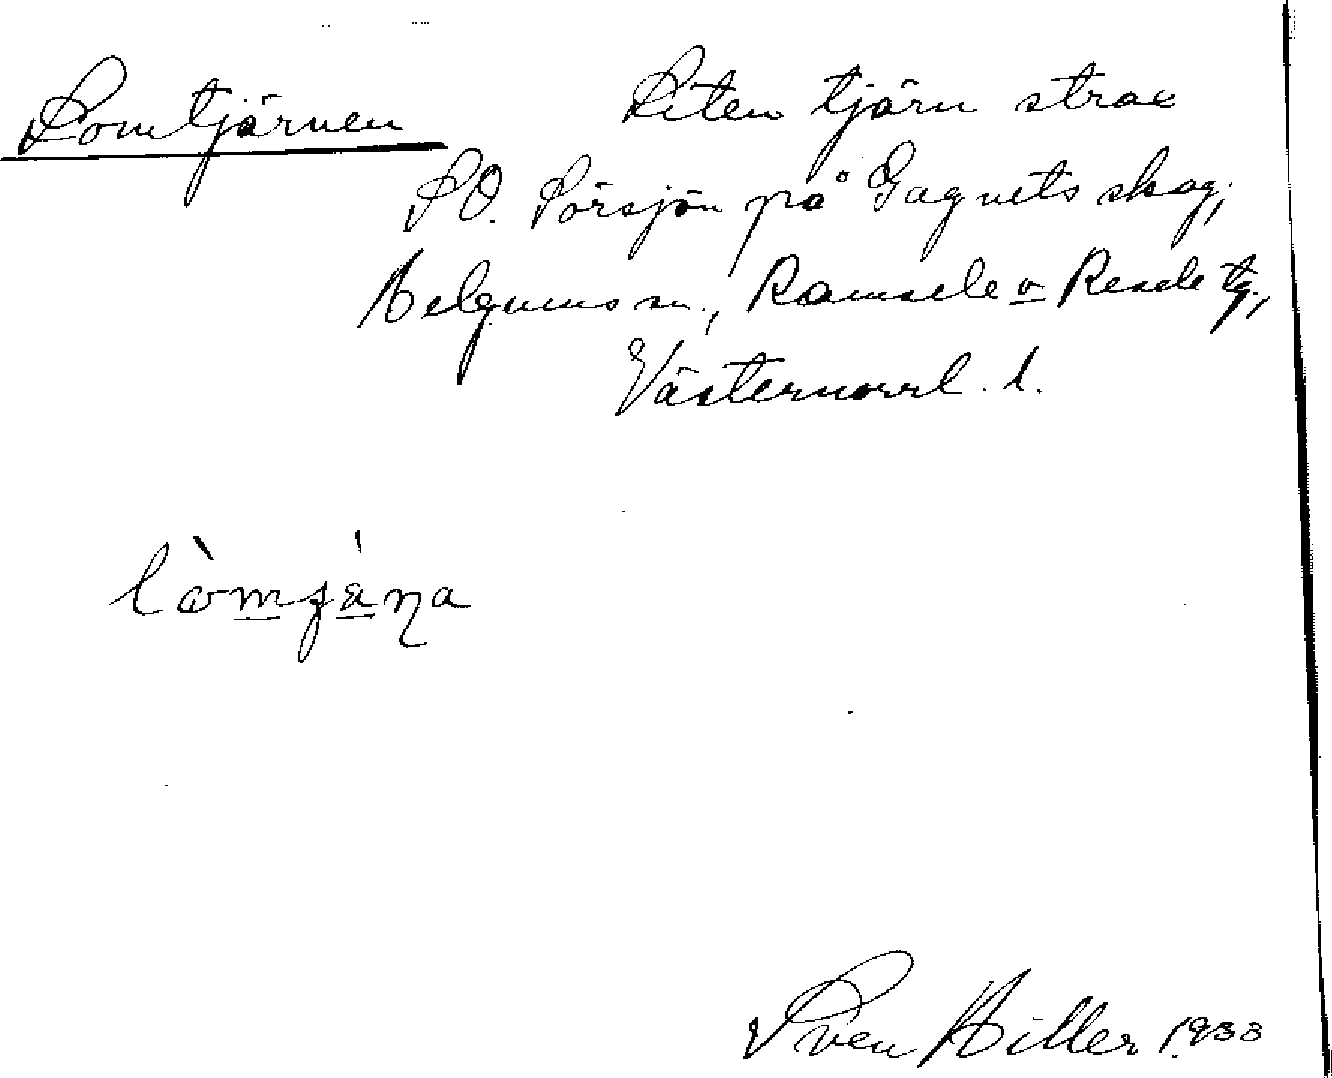 Lomtjärnen
Liten tjärn strax
SO. Sörsjön på Gagnets skog,
Helgums sn., Ramsele o Resele tg.,
Västernorrl. l.
Sven Hiller 1933